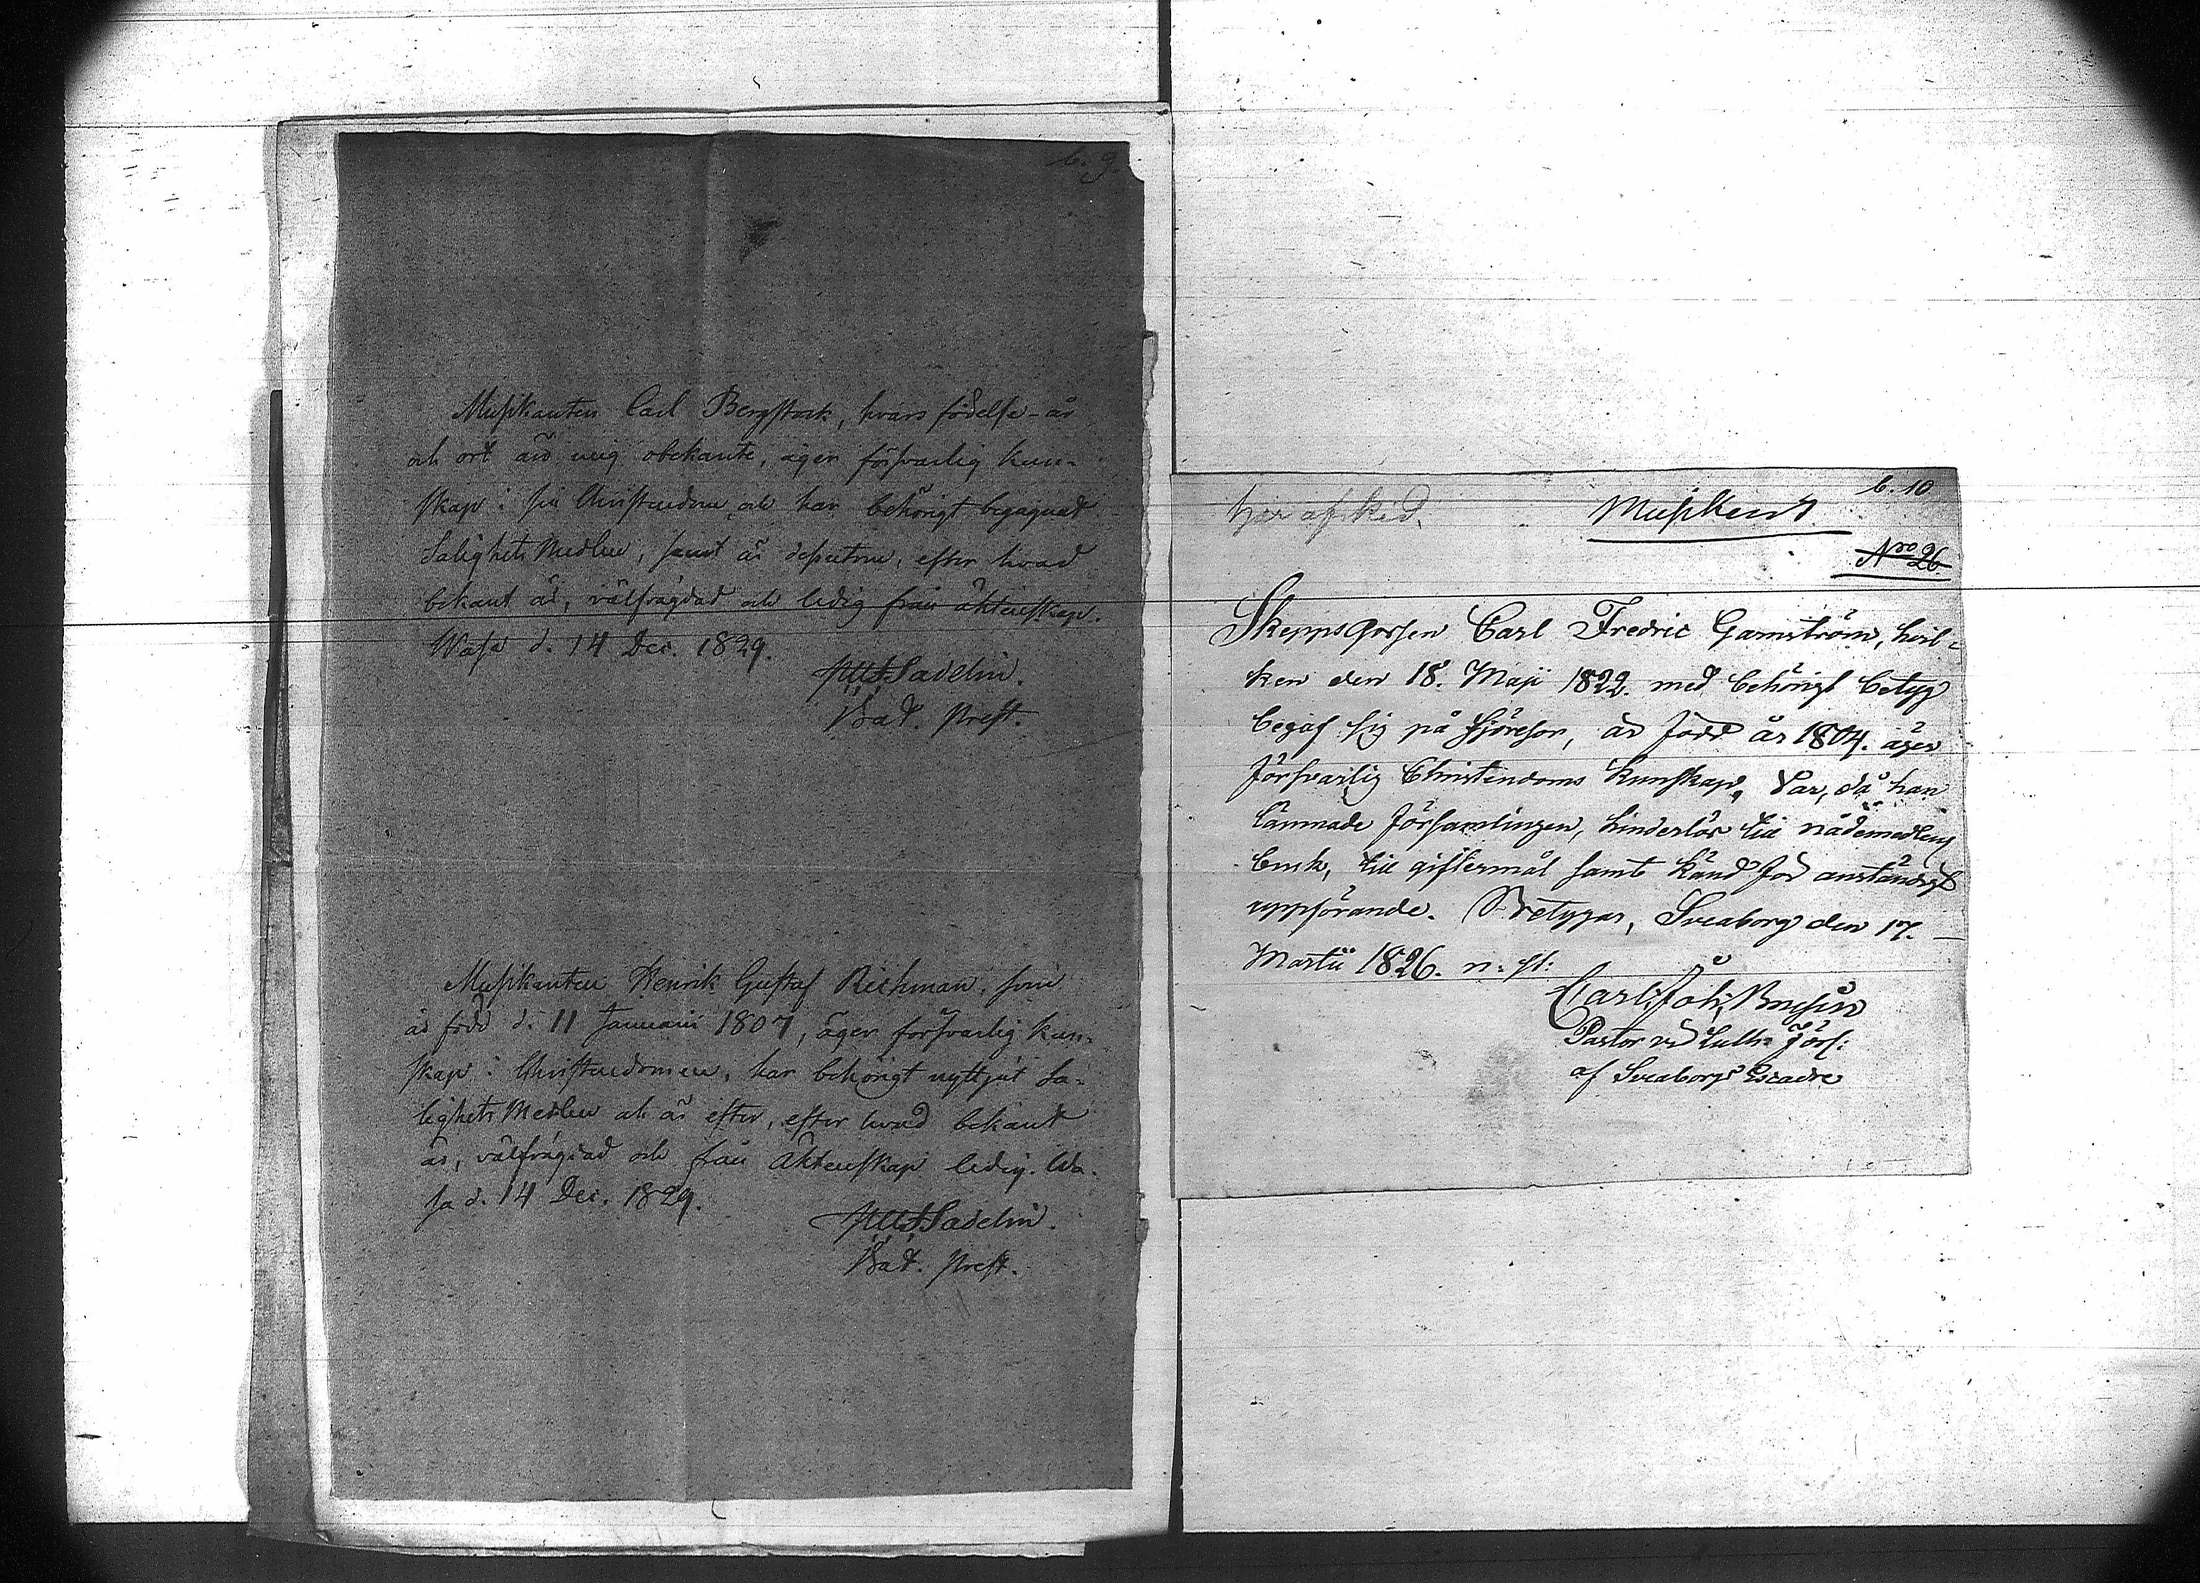 b. 9.
Musikanten Carl Bergstock, hvars födelse-år
och ort äro mig obekante, äger försvarlig kun-
skap i sin Christendom och har behörigt begagnat
Salighets Medlen, samt är dessutom, efter hvad
bekant är, välfrägdad och ledig från äktenskap.
Wasa d. 14 Dec. 1829.
Sadelin.
Bat. Prest.
Musikanten Henrik Gustaf Richman, som
är född d. 11 Januarii 1807, äger försvarlig kun-
skap i Christendomen, har behörigt nyttjat Sa-
lighets Medlen och är efter, efter hvad bekant
är, välfrägdad och från Äktenskap ledig. Wa-
sa d. 14 Dec. 1829.
Sadelin.
Bat. Prest.
b. 10
har afsked. Musikant
Nro 26.
Skeppsgossen Carl Fredric Gamström, hvil-
ken den 18. Maji 1822. med behörigt betyg
begaf sig på sjöresor, är född år 1804. äger
försvarlig Christendoms kunskap, Var, då han
lämnade församlingen, hinderlös till nådemedlens
bruk, till giftermål samt känd för anständigt
uppförande. Betygar, Sveaborg den 17.
Martii 1826. n. st:
Carl Joh:
Pastor vid Luth: förs:
af Sveaborgs Escadre